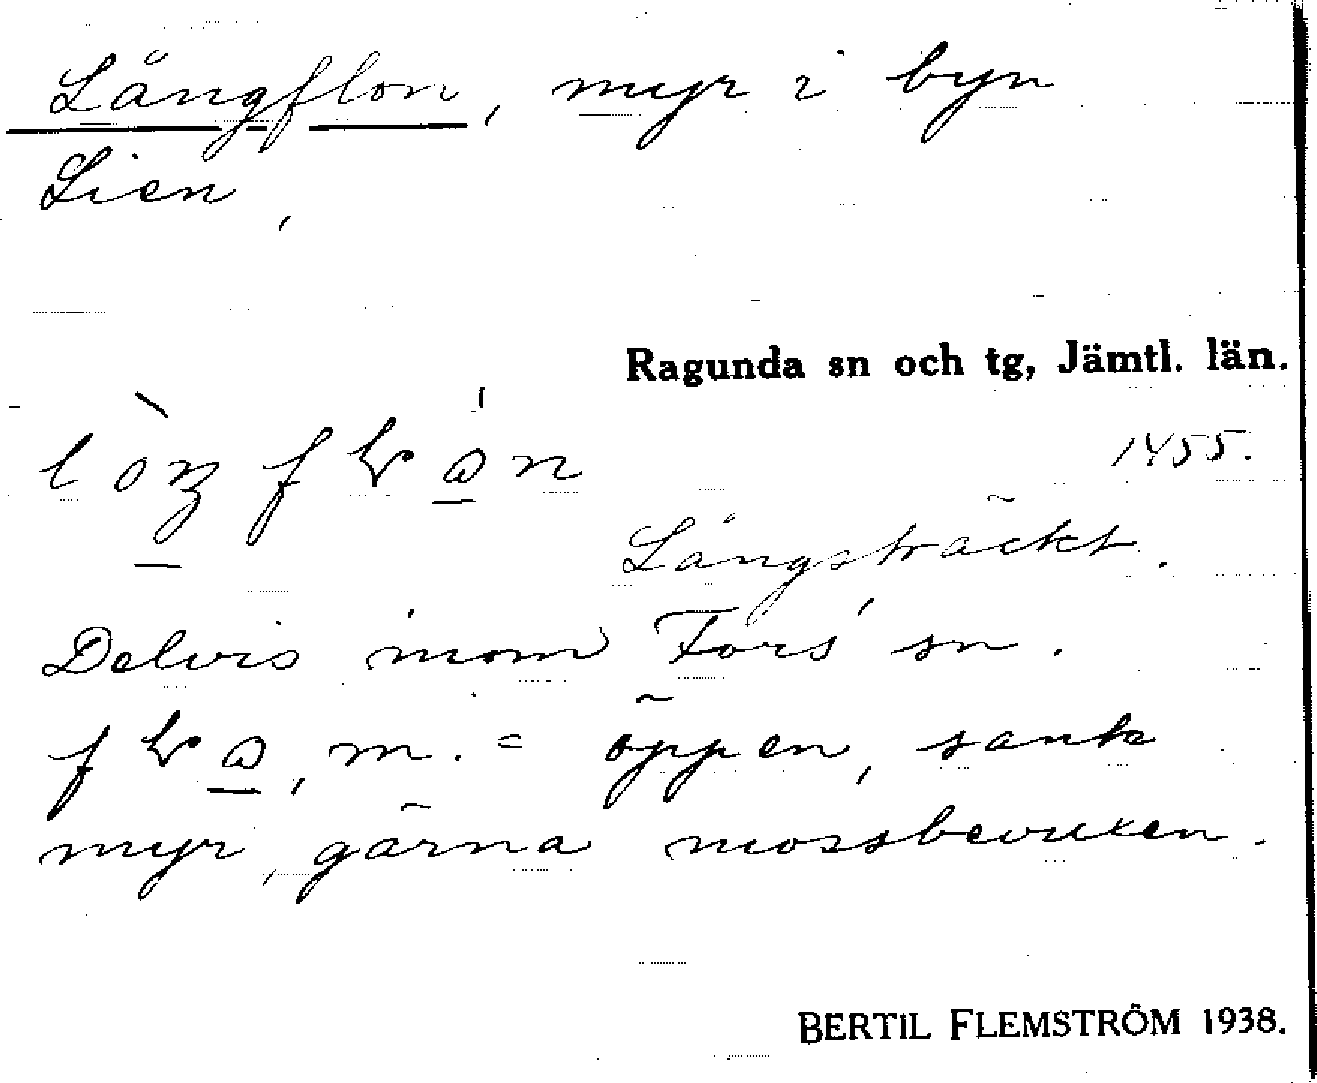 Långflon, myr i byn
Lien,
Ragunda sn och tg, Jämtl. län.
1455.
Långsträckt.
Delvis inom Fors' sn.
m. = öppen, sank
myr, gärna mossbevuxen.
BERTIL FLEMSTRÖM 1938.